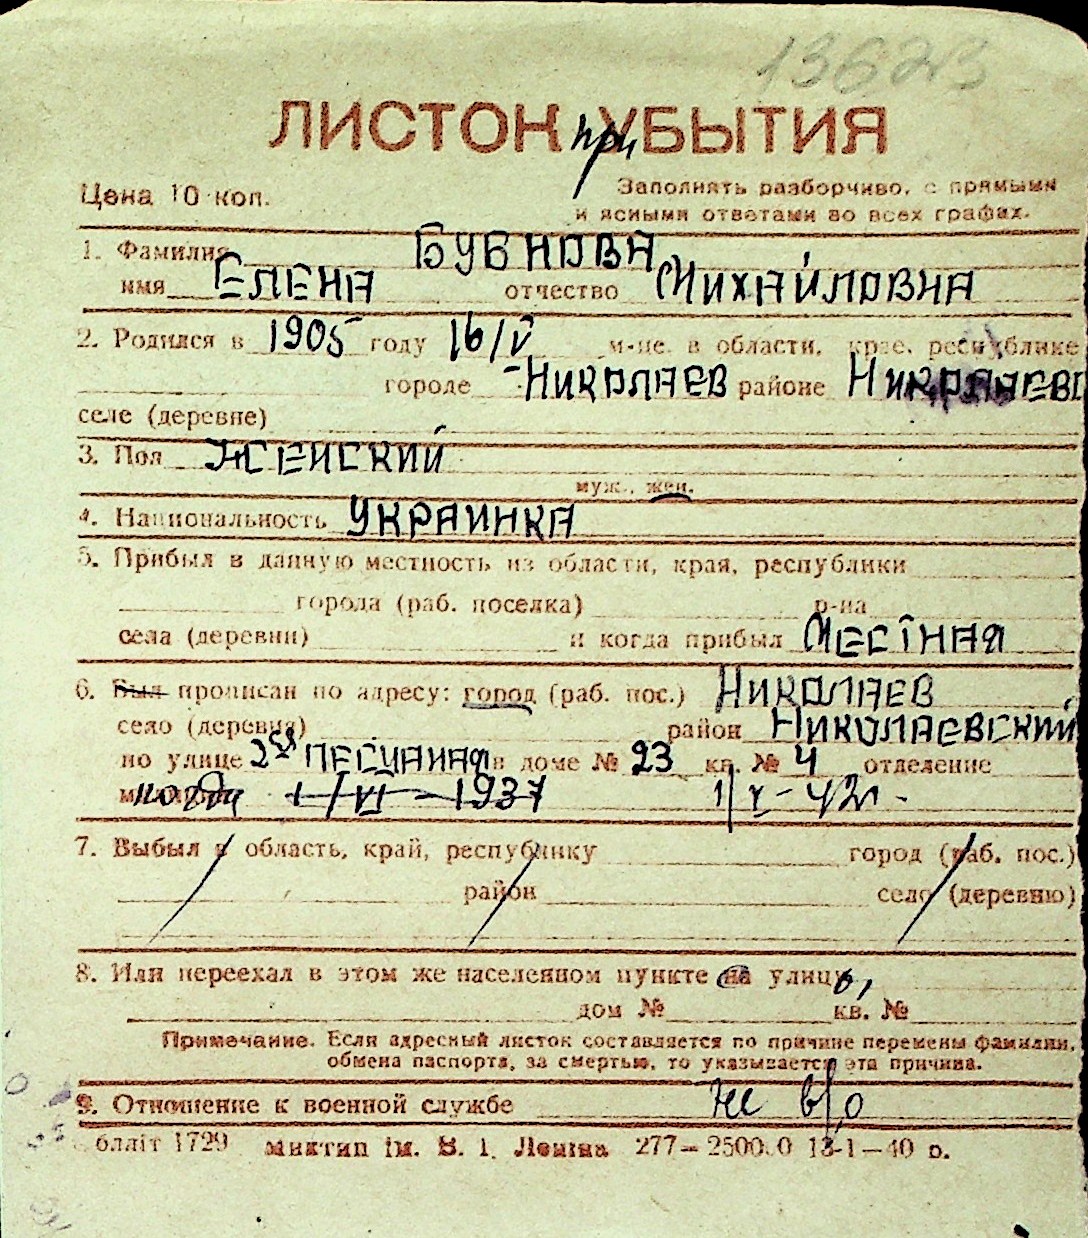 13623
ЛИСТОК при УБЫТИЯ
Цена 10 коп.
Заполнять разборчиво, с прямыми
и ясными ответами во всех графах.
1. Фамилия БУБНОВА
имя ЕЛЕНА отчество МИХАЙЛОВНА
2. Родился в 1905 году 16/V м-це, в области, крае, республике
городе НИКОЛАЕВ районе НИКОЛАЕВС
селе (деревне)
3. Пол ЖЕНСКИЙ
муж., жен.
4. Национальность УКРАИНКА
5. Прибыл в данную местность из области, края, республики
города (раб. поселка) р-на
села (деревни) и когда прибыл МЕСТНАЯ
6. Был прописан по адресу: город (раб. пос.) НИКОЛАЕВ
село (деревня) район НИКОЛАЕВСКИЙ
по улице 2ая ПЕСЧАНАЯ в доме № 23 кв. № 4 отделение
когда 1/VI - 1937 1/X - 42г.
7. Выбыл в область, край, республику город (раб. пос.)
район село (деревню)
8. Или переехал в этом же населенном пункте на улицу
дом № кв. №
Примечание. Если адресный листок составляется по причине перемены фамилии,
обмена паспорта, за смертью, то указывается эта причина.
9. Отношение к военной службе не в/о
бліт 1729 Миктип ім. В. І. Леніна 277—2500.0 13-1—40 р.